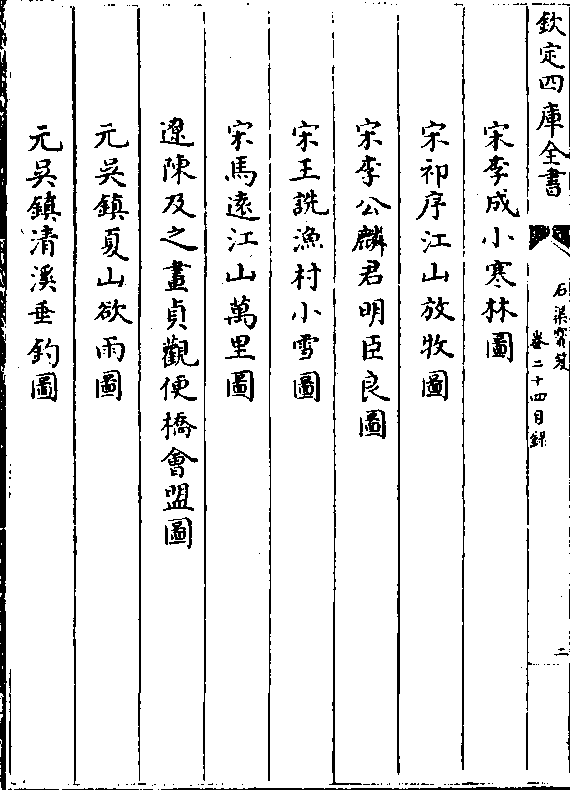 欽定四庫全書
石渠寶笈
卷二十四目錄
二
宋李成小寒林圖
宋祁序江山放牧圖
宋李公麟君明臣良圖
宋王詵漁村小雪圖
宋馬遠江山萬里圖
遼陳及之畫貞觀便橋會盟圖
元吳鎮夏山欲雨圖
元吳鎮清溪垂釣圖